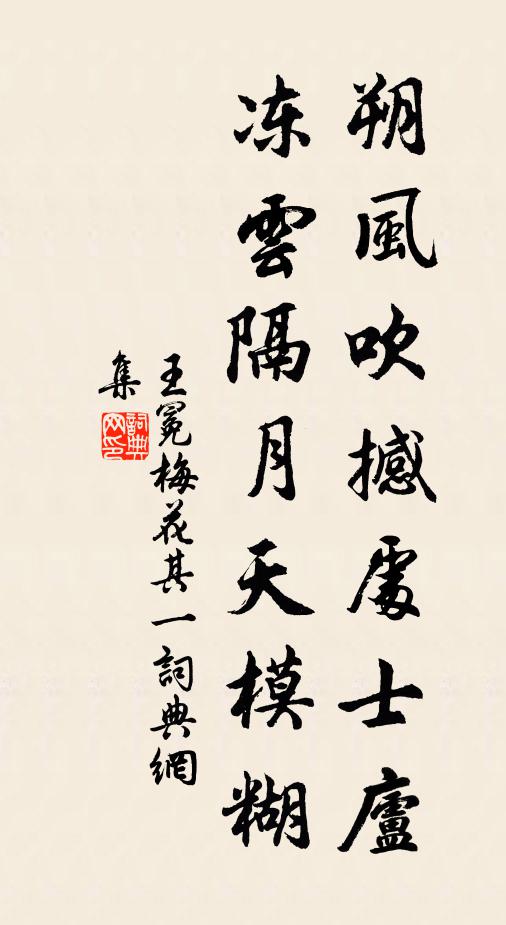 朔風吹撼處士廬
冻雲隔月天模糊
王冕梅花其一詞典網
集
詞典网印